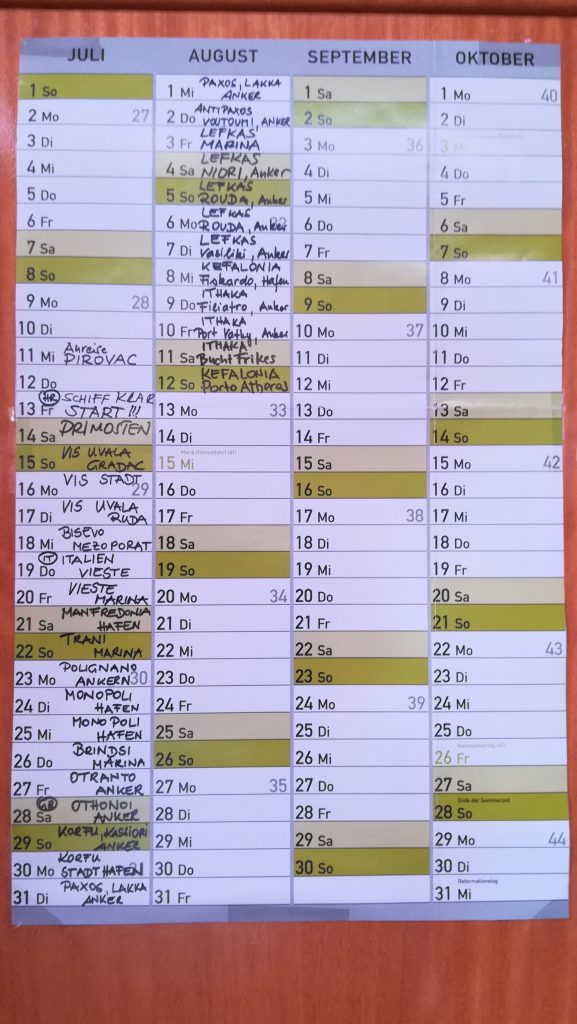 JULI
1 So
2 Mo 27
3 Di
4 Mi
5 Do
6 Fr
7 Sa
8 So
9 Mo 28
10 Di
11 Mi Anreise
PIROVAC
12 Do
13 Fr HR SCHIFF KLAR
START!!!
14 Sa PRIMOSTEN
15 So VIS UVALA
GRADAC
16 Mo VIS STADT 29
17 Di VIS UVALA
RUDA
18 Mi BISEVO
MEZOPORAT
19 Do IT ITALIEN
VIESTE
20 Fr VIESTE
MARINA
21 Sa MANFREDONIA
HAFEN
22 So TRANI
MARINA
23 Mo POLIGNANO
ANKERN 30
24 Di MONOPOLI
HAFEN
25 Mi MONOPOLI
HAFEN
26 Do BRINDSI
MARINA
27 Fr OTRANTO
ANKER
28 Sa GR OTHONOI
ANKER
29 So KORFU, KASSIOPI
ANKER
30 Mo KORFU
STADTHAFEN 31
31 Di PAXOS, LAKKA
ANKER
AUGUST
1 Mi PAXOS, LAKKA
ANKER
2 Do ANTIPAXOS
VOUTOUMI, ANKER
3 Fr LEFKAS
MARINA
4 Sa LEFKAS
NIORI, Anker
5 So LEFKAS
ROUDA, Anker
6 Mo LEFKAS
ROUDA, Anker 32
7 Di LEFKAS
Vasiliki, Anker
8 Mi KEFALONIA
Fiskardo, Hafen
9 Do ITHAKA
Filiatro, Anker
10 Fr ITHAKA
Port Vathy, Anker
11 Sa ITHAKA
Bucht Frikes
12 So KEFALONIA
Porto Atheras
13 Mo 33
14 Di
15 Mi Mariä Himmelfahrt (AT)
16 Do
17 Fr
18 Sa
19 So
20 Mo 34
21 Di
22 Mi
23 Do
24 Fr
25 Sa
26 So
27 Mo 35
28 Di
29 Mi
30 Do
31 Fr
SEPTEMBER
1 Sa
2 So
3 Mo 36
4 Di
5 Mi
6 Do
7 Fr
8 Sa
9 So
10 Mo 37
11 Di
12 Mi
13 Do
14 Fr
15 Sa
16 So
17 Mo 38
18 Di
19 Mi
20 Do
21 Fr
22 Sa
23 So
24 Mo 39
25 Di
26 Mi
27 Do
28 Fr
29 Sa
30 So
OKTOBER
1 Mo 40
2 Di
3 Mi
4 Do
5 Fr
6 Sa
7 So
8 Mo 41
9 Di
10 Mi
11 Do
12 Fr
13 Sa
14 So
15 Mo 42
16 Di
17 Mi
18 Do
19 Fr
20 Sa
21 So
22 Mo 43
23 Di
24 Mi
25 Do
26 Fr Nationalfeiertag (AT)
27 Sa
28 So Ende der Sommerzeit
29 Mo 44
30 Di
31 Mi Reformationstag